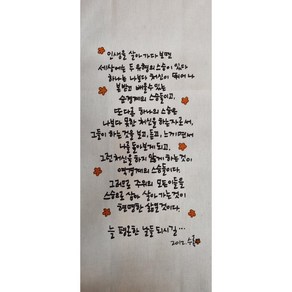 인생을 살아가다 보면
세상에는 두 유형의 스승이 있다
하나는 나보다 처신이 뛰어나
본받고 배울수 있는
순경계의 스승들이고,
또다른 하나의 스승은
나보다 못한 처신을 하는자로서,
그들이 하는것을 보고, 듣고, 느끼면서
나를 돌아보게 되고,
그런 처신을 하지 않게 하는것이
역경계의 스승들이다.
그러므로 주위의 모든이들을
스승으로 삼아 살아가는것이
현명한 삶일것이다.
늘 평온한 날들 되시길...
2012.